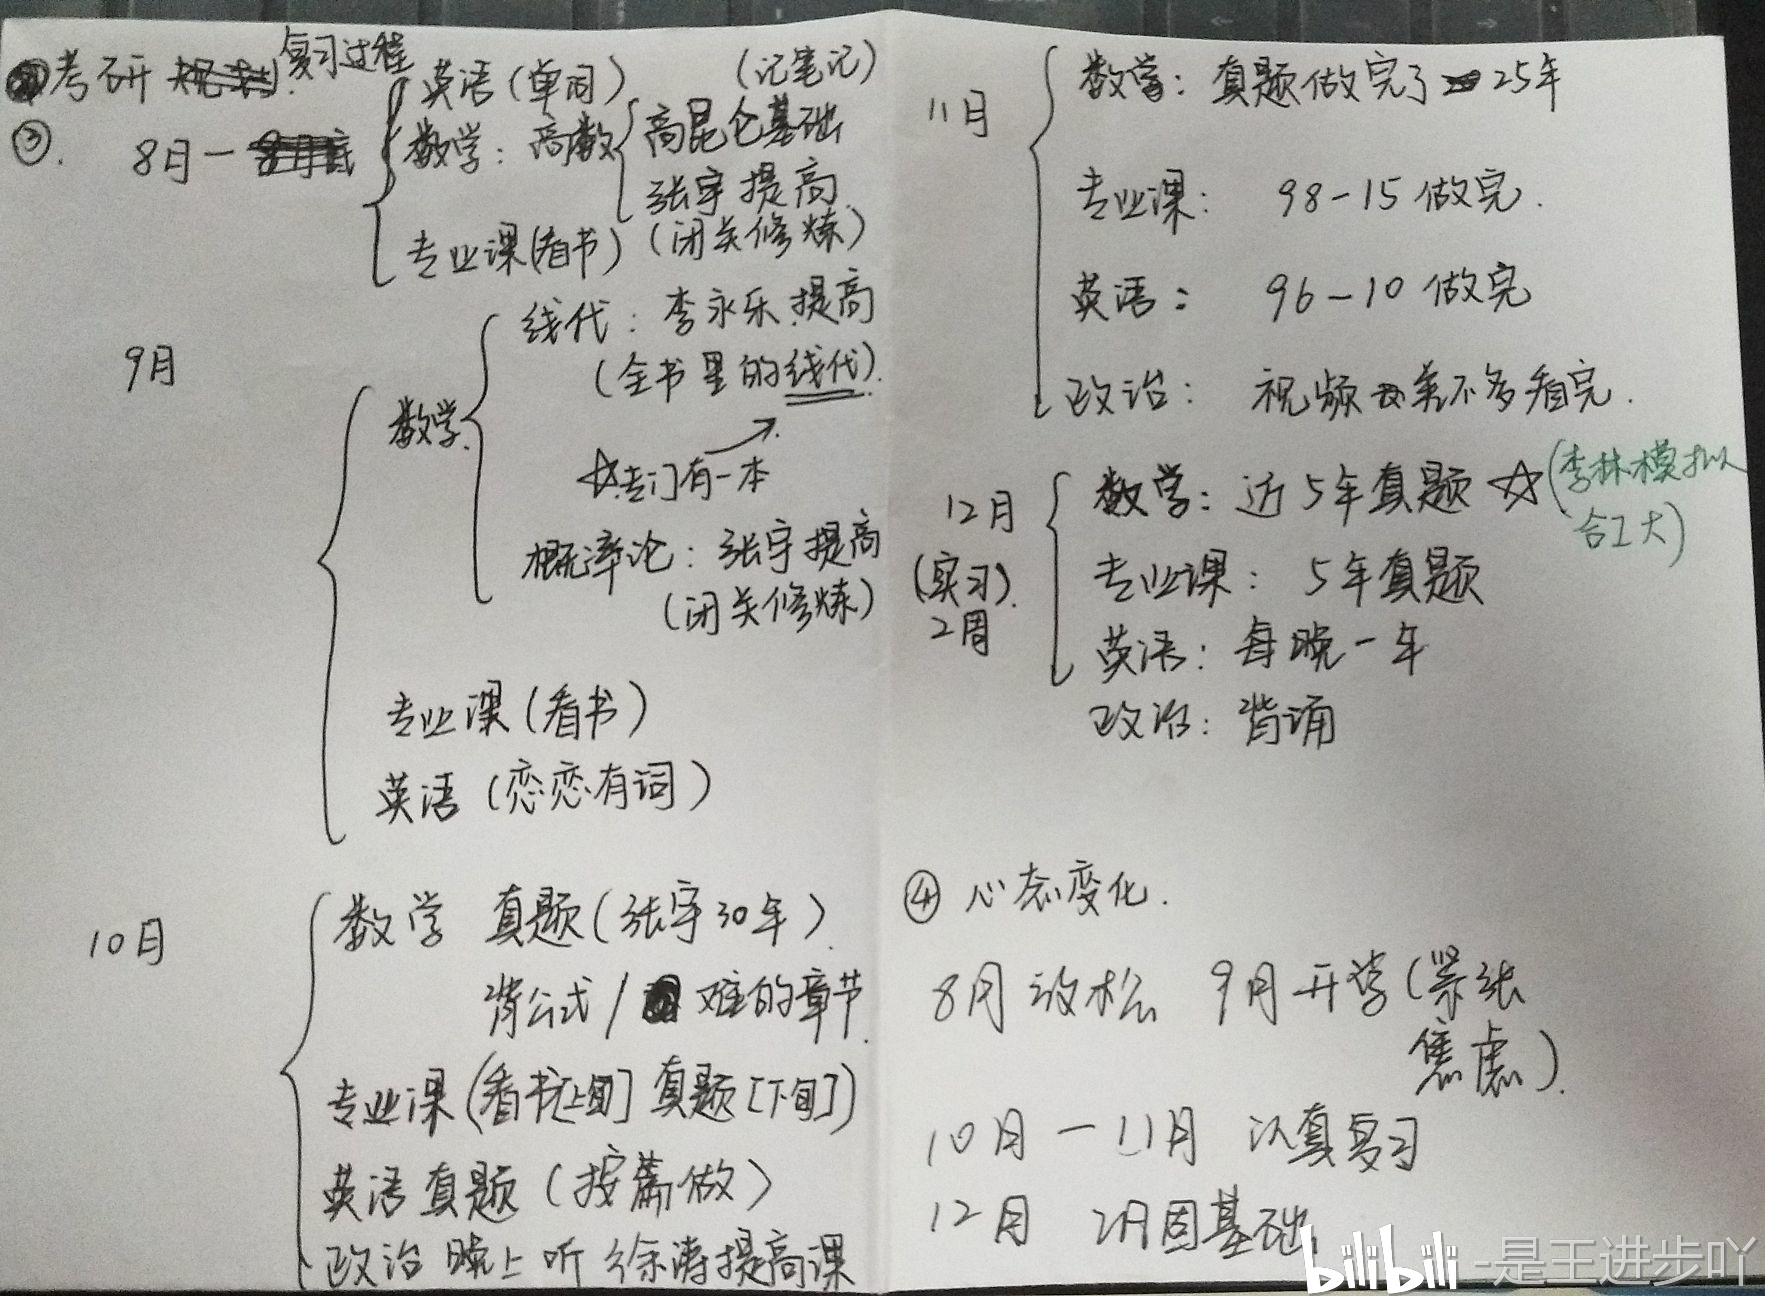 考研 复习过程
③.
8月一
英语(单词) (记笔记)
数学:高数
高昆仑基础
张宇提高
(闭关修炼)
专业课(看书)
9月
数学.
线代:李永乐提高
(全书里的线代).
☆专门有一本
概率论:张宇提高
(闭关修炼)
专业课(看书)
英语(恋恋有词)
10月
数学 真题(张宇30年).
背公式/难的章节.
专业课(看书[上旬] 真题[下旬])
英语真题(按篇做)
政治 晚上听 徐涛提高课
11月
数学:真题做完了 25年
专业课: 98-15 做完.
英语: 96-10 做完
政治: 视频差不多看完.
12月
(实习).
2周
数学:近5年真题 ☆(李林模拟
合工大)
专业课: 5年真题
英语:每晚一年
政治:背诵
④ 心态变化.
8月 放松 9月开学(紧张
焦虑).
10月一11月 认真复习
12月 巩固基础
bilibili -是王进步吖